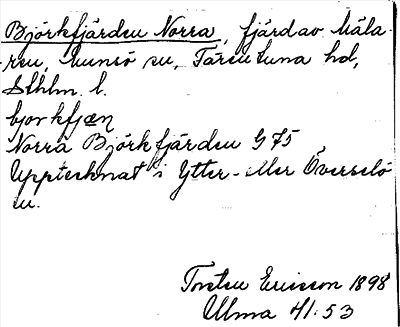 Björkfjärden Norra, fjärd av Mäla-
ren, Munsö sn, Färentuna hd,
Sthlm. l.
bjorkfjæn
Norra Björkfjärden G 75
Upptecknat i Ytter- eller Överselö
sn.
Torsten Ericsson 1898
Ulma 41:53